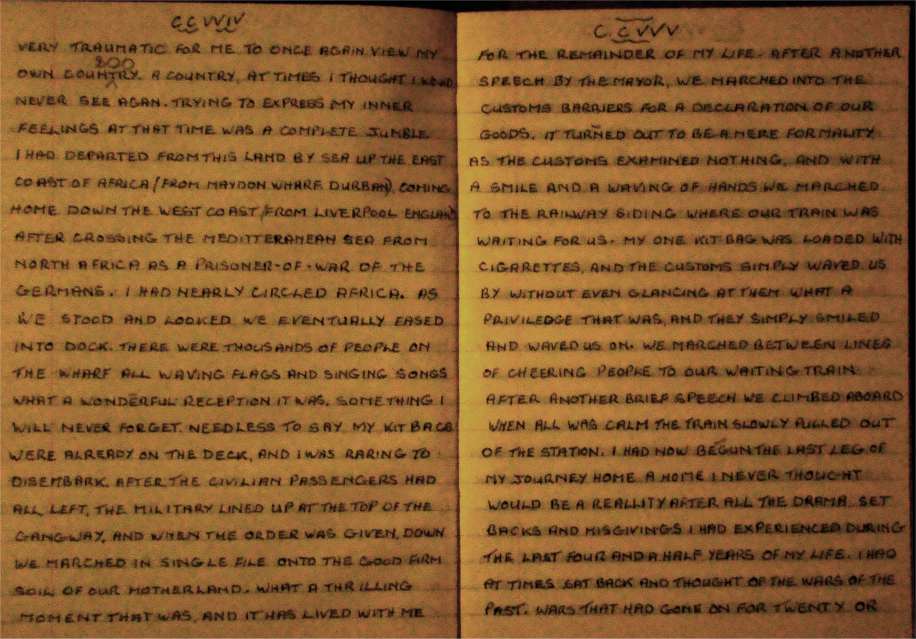 CCVVIV
VERY TRAUMATIC FOR ME TO ONCE AGAIN VIEW MY
200
OWN COUNTRY. A COUNTRY, AT TIMES I THOUGHT I WOULD
NEVER SEE AGAN. TRYING TO EXPRESS MY INNER
FEELINGS AT THAT TIME WAS A COMPLETE JUMBLE
I HAD DEPARTED FROM THIS LAND BY SEA UP THE EAST
COAST OF AFRICA (FROM MAYDON WHARF. DURBAN), COMING
HOME DOWN THE WEST COAST (FROM LIVERPOOL ENGLAND)
AFTER CROSSING THE MEDITTERANEAN SEA FROM
NORTH AFRICA AS A PRISONER-OF-WAR OF THE
GERMANS. I HAD NEARLY CIRCLED AFRICA. AS
WE STOOD AND LOOKED WE EVENTUALLY EASED
INTO DOCK. THERE WERE THOUSANDS OF PEOPLE ON
THE WHARF ALL WAVING FLAGS AND SINGING SONGS
WHAT A WONDERFUL RECEPTION IT WAS. SOMETHING I
WILL NEVER FORGET. NEEDLESS TO SAY MY KIT BAGS
WERE ALREADY ON THE DECK, AND I WAS RARING TO
DISEMBARK. AFTER THE CIVILIAN PASSENGERS HAD
ALL LEFT, THE MILITARY LINED UP AT THE TOP OF THE
GANGWAY, AND WHEN THE ORDER WAS GIVEN, DOWN
WE MARCHED IN SINGLE FILE ONTO THE GOOD FIRM
SOIL OF OUR MOTHERLAND. WHAT A THRILLING
MOMENT THAT WAS, AND IT HAS LIVED WITH ME
C.CVVV
FOR THE REMAINDER OF MY LIFE. AFTER ANOTHER
SPEECH BY THE MAYOR, WE MARCHED INTO THE
CUSTOMS BARRIERS FOR A DECLARATION OF OUR
GOODS. IT TURNED OUT TO BE A MERE FORMALITY
AS THE CUSTOMS EXAMINED NOTHING, AND WITH
A SMILE AND A WAVING OF HANDS WE MARCHED
TO THE RAILWAY SIDING WHERE OUR TRAIN WAS
WAITING FOR US. MY ONE KIT BAG WAS LOADED WITH
CIGARETTES, AND THE CUSTOMS SIMPLY WAVED US
BY WITHOUT EVEN GLANCING AT THEM WHAT A
PRIVILEDGE THAT WAS, AND THEY SIMPLY SMILED
AND WAVED US ON. WE MARCHED BETWEEN LINES
OF CHEERING PEOPLE TO OUR WAITING TRAIN.
AFTER ANOTHER BRIEF SPEECH WE CLIMBED ABOARD
WHEN ALL WAS CALM THE TRAIN SLOWLY PULLED OUT
OF THE STATION. I HAD NOW BEGUN THE LAST LEG OF
MY JOURNEY HOME A HOME I NEVER THOUGHT
WOULD BE A REALLITY AFTER ALL THE DRAMA. SET
BACKS AND MISGIVINGS I HAD EXPERIENCED DURING
THE LAST FOUR AND A HALF YEARS OF MY LIFE. I HAD
AT TIMES SAT BACK AND THOUGHT OF THE WARS OF THE
PAST. WARS THAT HAD GONE ON FOR TWENTY OR